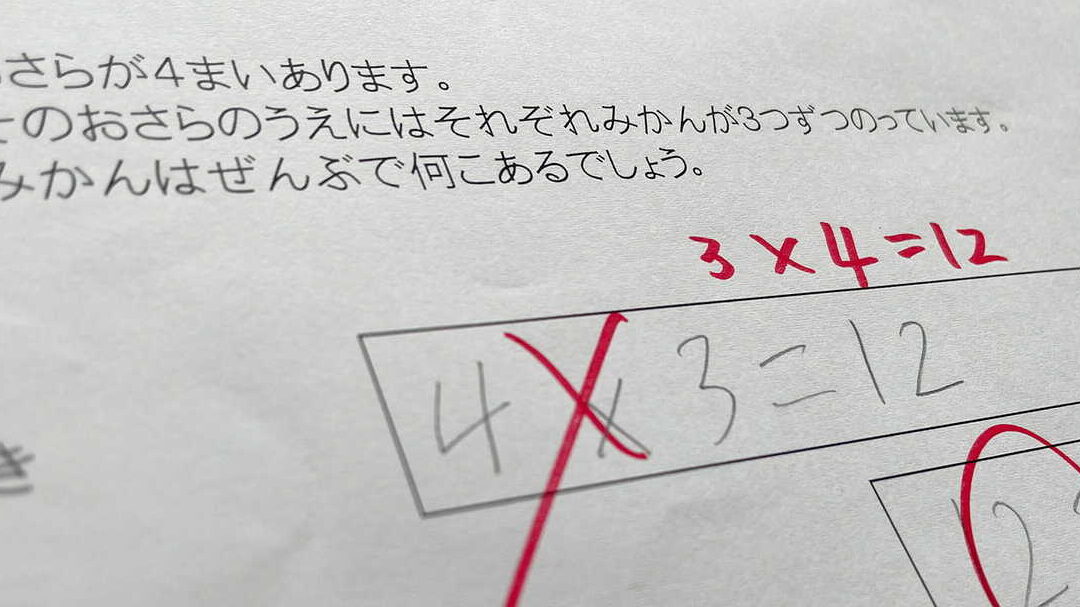 さらが4まいあります。
そのおさらのうえにはそれぞれみかんが3つずつのっています。
みかんはぜんぶで何こあるでしょう。
3×4=12
4×3=12
き
12